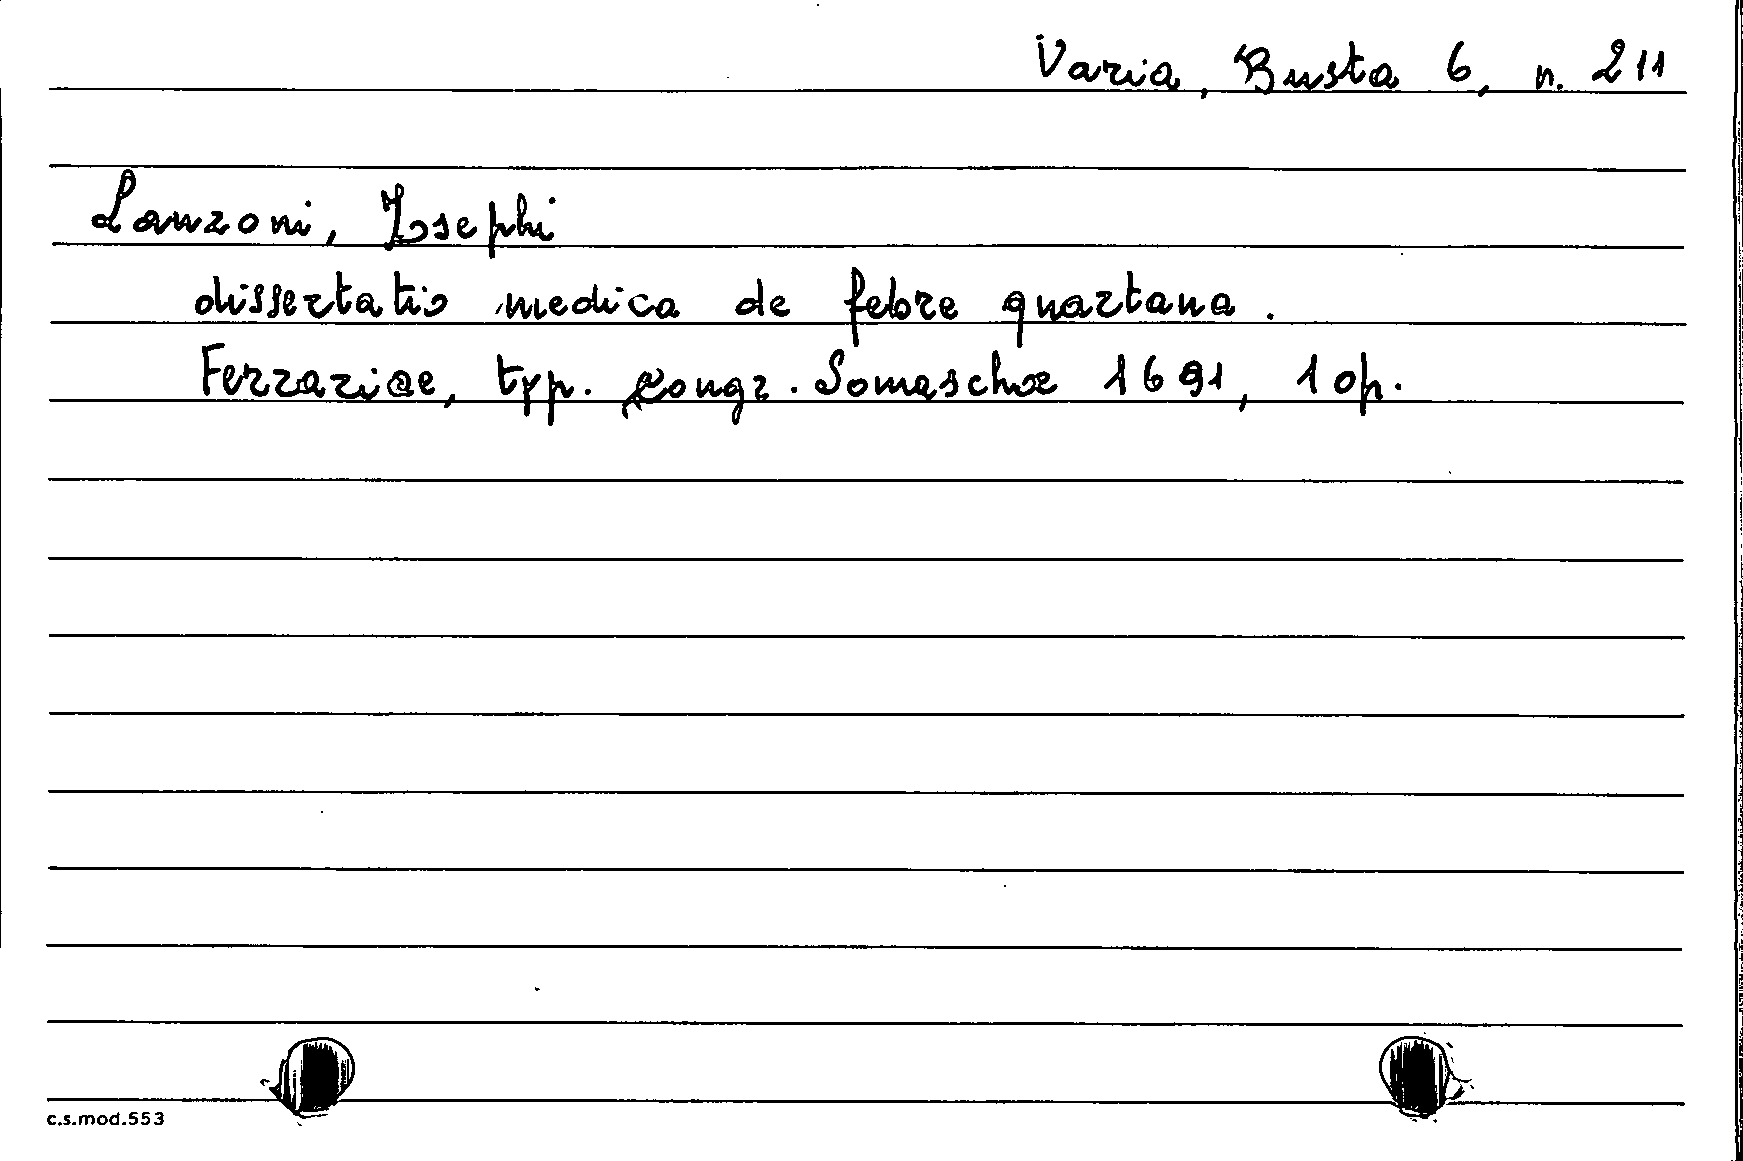 Varia, Busta 6, n. 211
Lanzoni, Iosephi
dissertatio medica de febre quartana.
Ferrariae, typ. Congr. Somaschae 1691, 10p.
c.s.mod.553